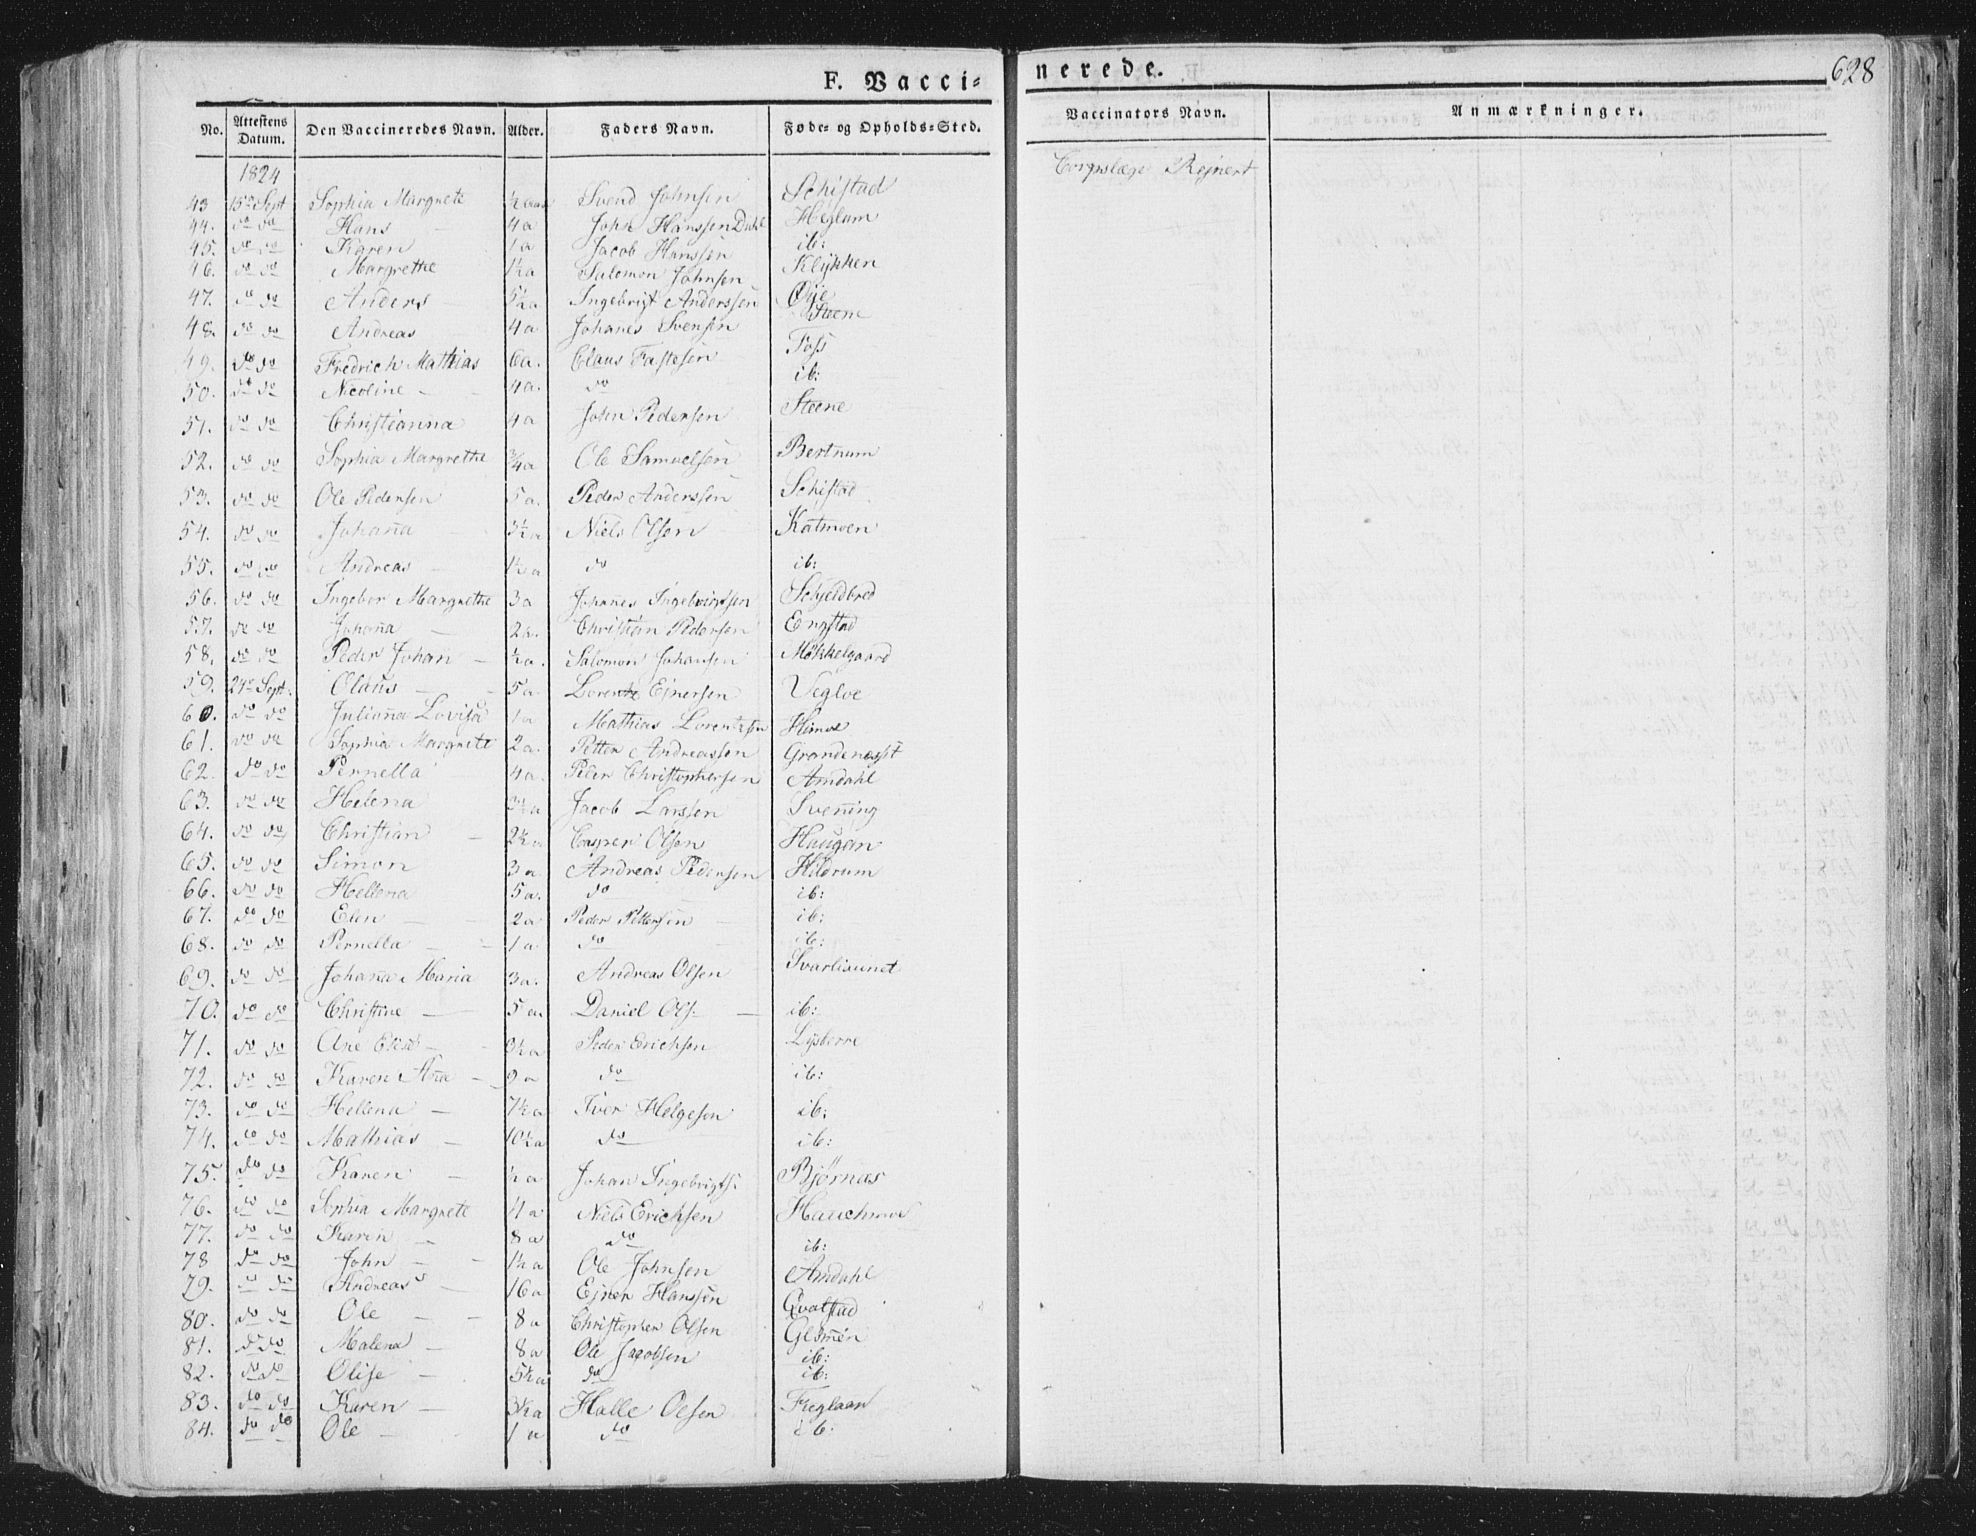 628
F. Vacci=
nerede.
No. Attestens Datum. Den Vaccineredes Navn. Alder. Faders Navn. Føde- og Opholds-Sted. Vaccinators Navn. Anmærkninger.
1824 Corpslæge Rejnert
43 15de Sept Sophia Margrete Svend Johnsen Schistad
44. do do Hans 4 a John Hanssen Heglum
45. do do Karen 1 a Jacob Hanssen ib:
46. do do Margrethe 1½ a Salomon Johnsen Klykken
47. do do Anders 5½ a Ingebrigt Anderssen Øie
48. do do Andreas 4 a Johanes Svensen Steene
49. do do Fredrich Mathias 6 a. Claus Fastesen Foss
50. do do Nicoline 4 a. do ib:
51. do do Christianna 4 a John Pedersen Steene
52. do do Sophia Margrethe ¾ a Ole Samuelsen Bertnum
53. do do Ole Pedersen 5 a. Peder Anderssen Schistad
54. do do Johan̄a 3½ a Niels Olsen Katmoen
55. do do Andreas 1½ a do ib:
56. do do Ingebor Margrethe 3 a Johan̄es Ingebrigtsen Schjeldbred
57. do do Johan̄a 2½. Christian Pedersen Engstad
58. do do Peder Johan ½ a. Salomon Johansen Møkkelgaard
59. 24de Sept. Olaus 5 a Lorentz Ejnersen Vegloe
60. do do Julian̄a Lovisa 1 a Mathias Lorentzen Himoe
61. do do Sophia Margrete 2 a. Petter Andreassen Grandenesset
62. do do Pernella 4 a. Peder Christophersen Amdahl
63. do do Helena 3½ a Jacob Larssen Sven̄ing
64. do do Christian 2½ a Casper Olsen Haugan
65. do do Simon 3 a Andreas Pedersen Hildrum
66. do do Hellena 5 a. do ib:
67. do do Elen 2 a Peder Pettersen ib:
68. do do Pernella 1 a do ib:
69. do do Johan̄a Maria 3 a. Andreas Olsen Svarlisunet
70. do do Christine 5 a. Daniel Ols: ib:
71. do do Ane Elise 3½ a Peder Erichsen Lysberre
72. do do Karen An̄a 9 a do ib:
73. do do Hellena 7½ a Iver Helgesen ib:
74. do do Mathias 10½ a do ib:
75. do do Karen ½ a Johan Ingebrigts: Bjørnæs
76. do do Sophia Margrete 4 a Niels Erichsen Hauchmoe
77. do do Karen 8 a do ib:
78 do do John 1½ a Ole Johnsen Amdahl
79. do do Andreas 16 a Ejner Hanssen Qvatstad
80. do do Ole 8 a Christopher Olsen Glømen
81. do do Malena 8 a Ole Jacobsen ib:
82. do do Olise 5½ a do ib:
83. do do Karen 3½ a Halle Olsen Fuglaan
84. do do Ole 1 a do ib: